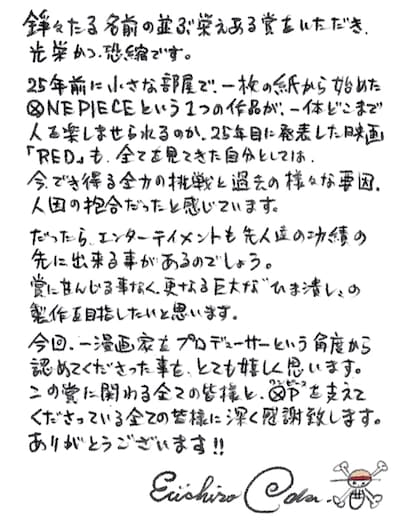 錚々たる名前の並ぶ栄えある賞をいただき、
光栄かつ恐縮です。
25年前に小さな部屋で、一枚の紙から始めた
ONE PIECEという1つの作品が、一体どこまで
人を楽しませられるのか。25年目に発表した映画
「RED」も、全てを見てきた自分としては、
今、でき得る全力の挑戦と過去の様々な要因、
人因の抱合だったと感じています。
だったら、エンターテイメントも先人達の功績の
先に出来る事があるのでしょう。
賞に甘んじる事なく、更なる巨大な“ひま潰し”の
製作を目指したいと思います。
今回、一漫画家をプロデューサーという角度から
認めてくださった事を、とても嬉しく思います。
この賞に関わる全ての皆様と、OPを支えて
くださっている全ての皆様に深く感謝致します。
ありがとうございます!!
Eiichiro Oda